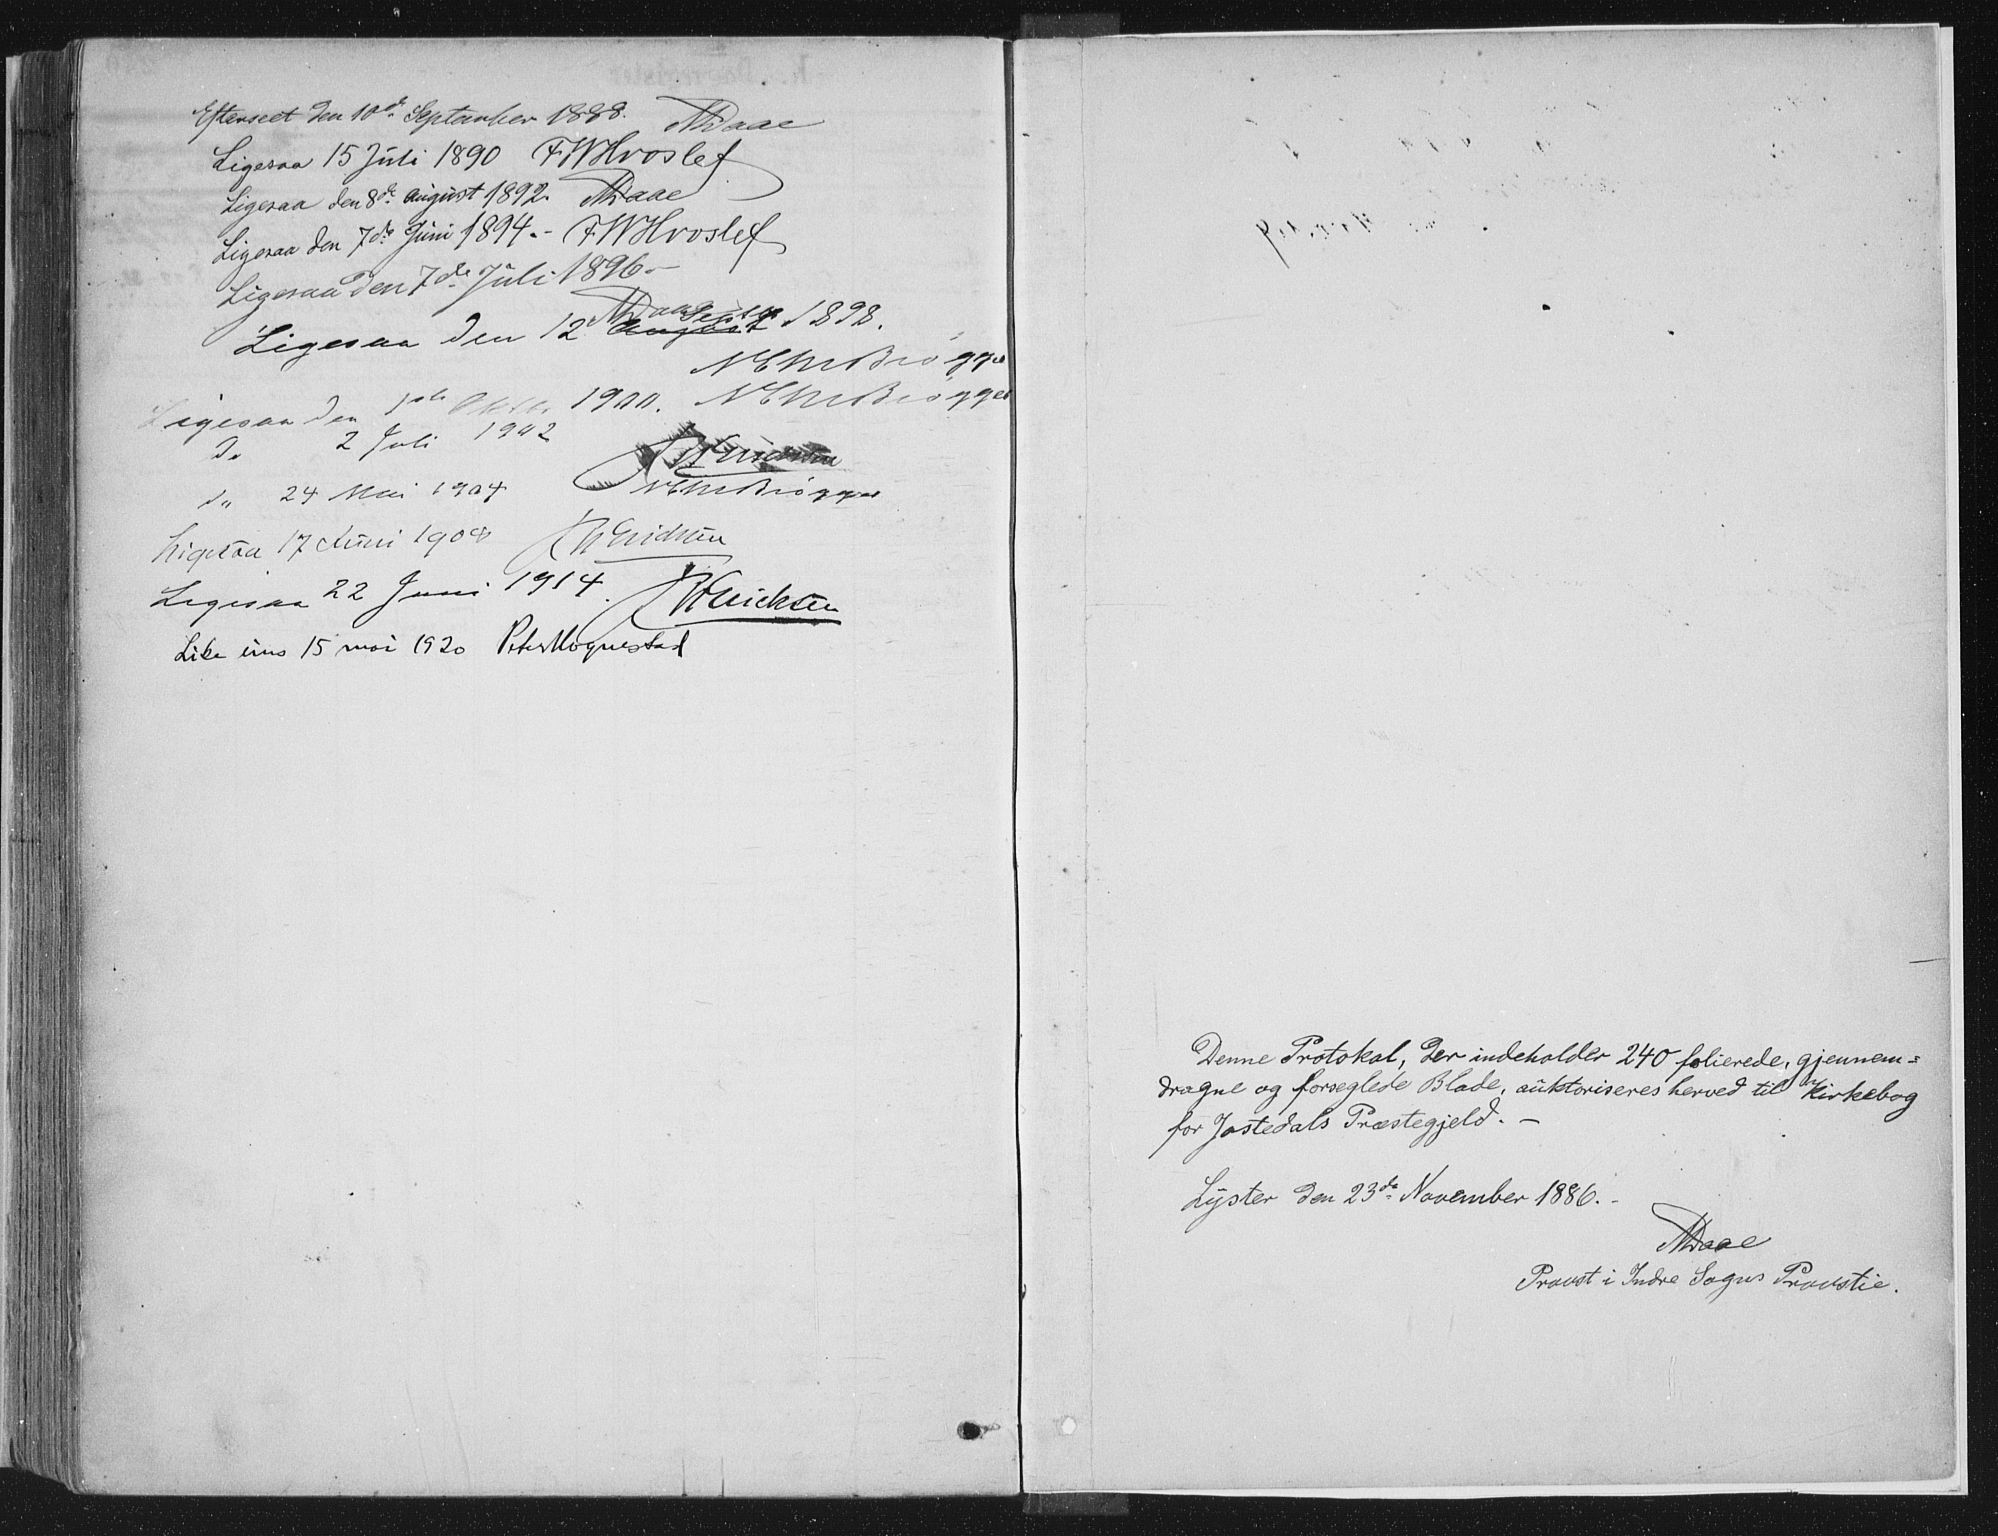 Efterseet den 10de September 1888. Daae
Ligesaa 15 Juli 1890 FWHvoslef
Ligesaa den 8de august 1892. Daae
Ligesaa den 7de Juni 1894.- FWHvoslef
Ligesaa den 7de Juli 1896.-
Daae
Ligesaa den 12 august Septbr 1898.
Brøgger
Ligesaa den 1ste Oktbr 1900. Brøgger
Do 2 Juli 1902
do 24 Mai 1904 Brøgger
Ligesaa 17 Juni 1908
Ligesaa 22 Juni 1914. Erichsen
Like eins 15 mai 1920 Peter Hognestad
Denne Protokol, der indeholder 240 folierede, gjennem=
dragne og forseglede Blade, auktoriseres herved til en Kirkebog
for Jostedals Præstegjeld. -
Lyster den 23de November 1886.-
Daae
Provst i Indre Sogns Provstie.